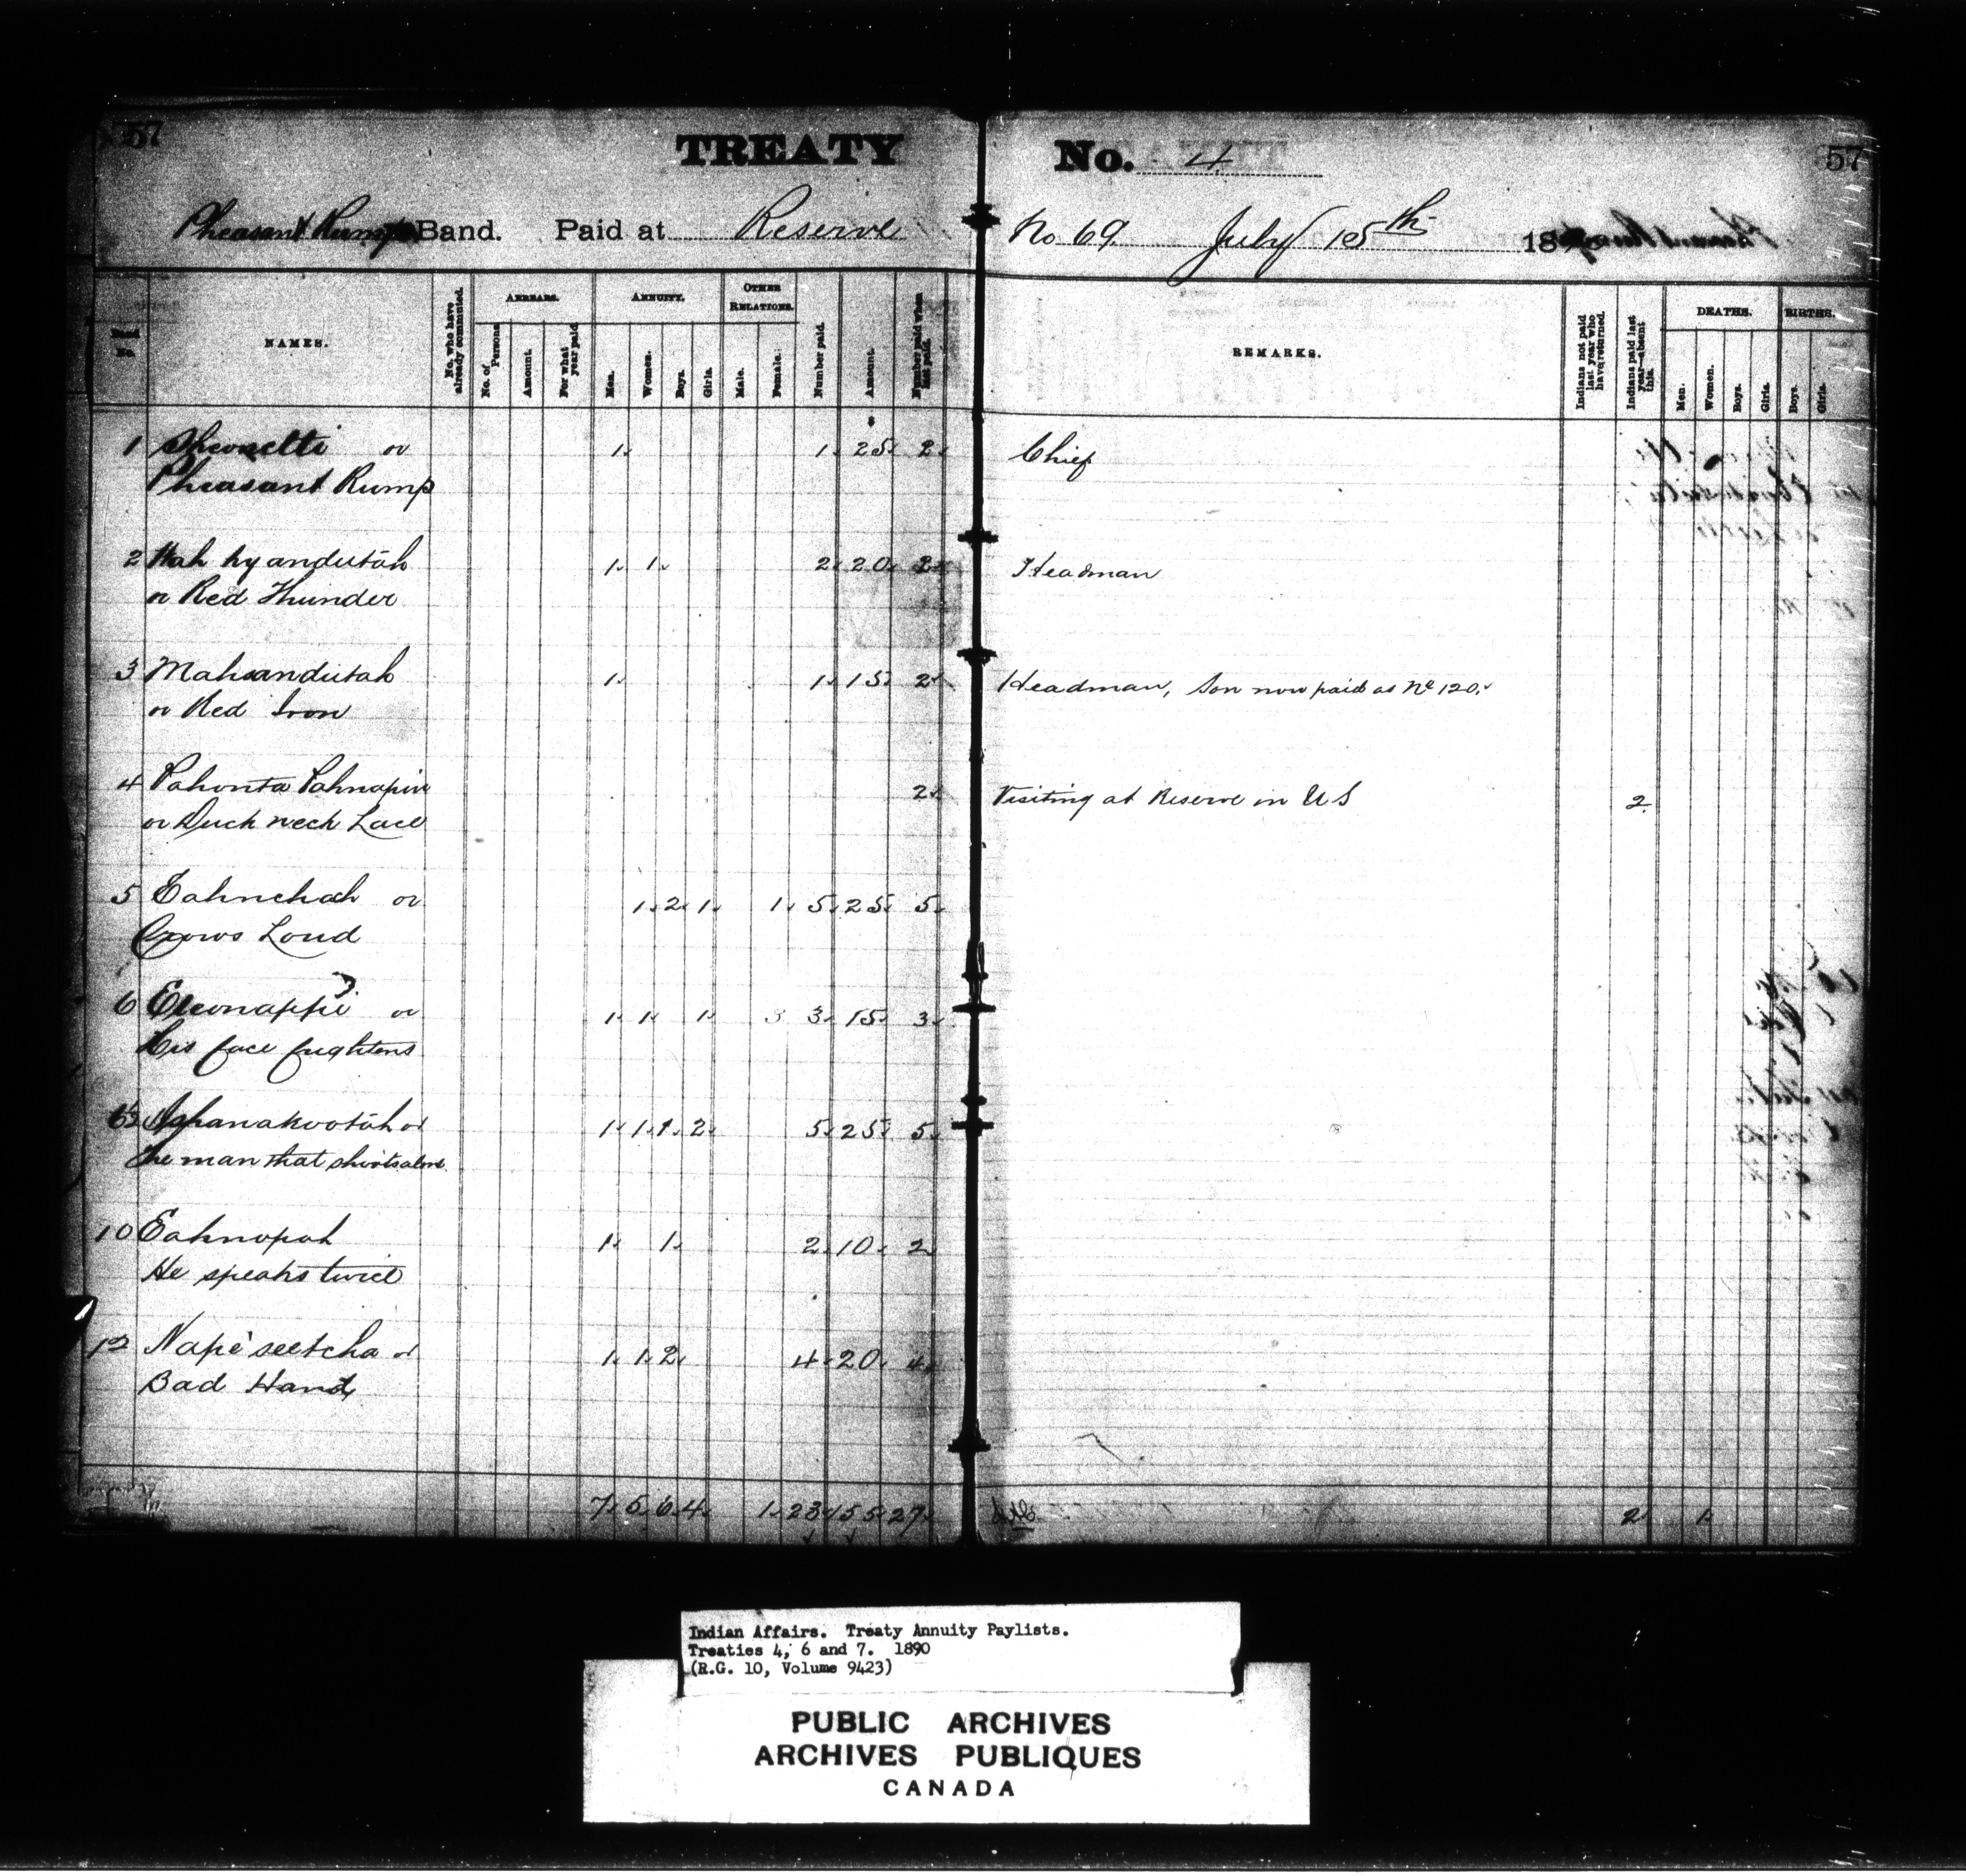 57 TREATY No. 4 57
Pheasant Rump Band. Paid at Reserve No 69. July 15th 18
Band No. NAMES. No. who have already commuted. ARREARS. ANNUITY. OTHER RELATIONS. Number paid. Amount. Number paid when last paid. REMARKS. Indians not paid last year who have returned. Indians paid last year—absent this. DEATHS. BIRTHS.
No. of Persons Amount. For what year paid Men. Women. Boys. Girls. Male. Female. Men. Women. Boys. Girls. Boys. Girls.
1 Sheonetti or 1. 1. 25. 2. Chief
Pheasant Rump
2 Wah hy andutah 1. 1. 2. 20. 2. Headman
or Red Thunder
3 Mahsandutah 1. 1. 15. 2. Headman, Son now paid as No 120.
or Red Iron
4 Pahonta Pahnapin 2. Visiting at Reserve in US 2.
or Duck neck Lace
5 Eahnchah or 1. 2. 1. 1. 5. 25. 5.
Crows Loud
6 or 1. 1. 1. 3 3. 15. 3.
His face frightens
or 1. 1. 1. 2. 5. 25. 5.
The man that shoots alone
10 Eahnopah 1. 1. 2. 10. 2.
He speaks twice
12 Napé seetcha or 1. 1. 2. 4. 20. 4.
Bad Hand
7. 5. 6. 4. 1. 23. 155. 27. 2 1.
Indian Affairs. Treaty Annuity Paylists.
Treaties 4, 6 and 7. 1890
(R.G. 10, Volume 9423)
PUBLIC ARCHIVES
ARCHIVES PUBLIQUES
CANADA